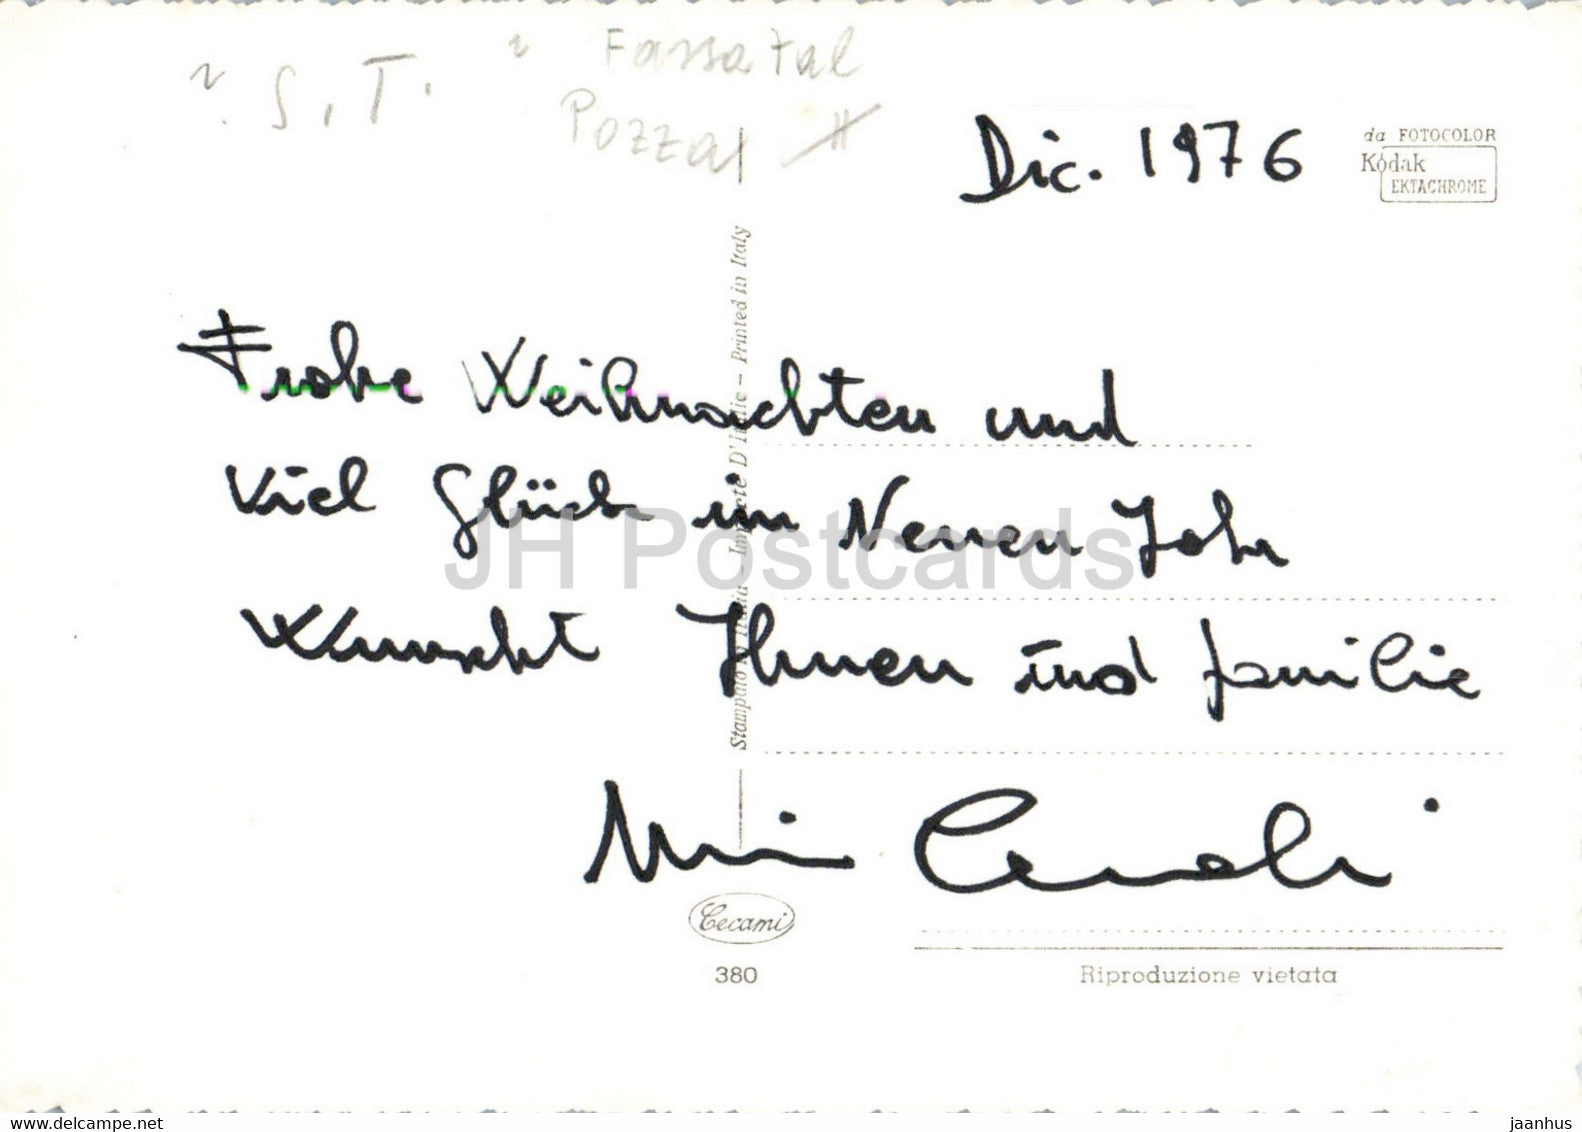 S.T.
Fassatal
Pozza
Dic. 1976
da FOTOCOLOR
Kodak
EKTACHROME
Frohe Weihnachten und
viel Glück im Neuen Jahr
Wunscht Ihnen und familie
Stampato in Italia - Importé D'Italie - Printed in Italy
JH Postcards
Cecami
380
Riproduzione vietata
www.delcampe.net
jaanhus